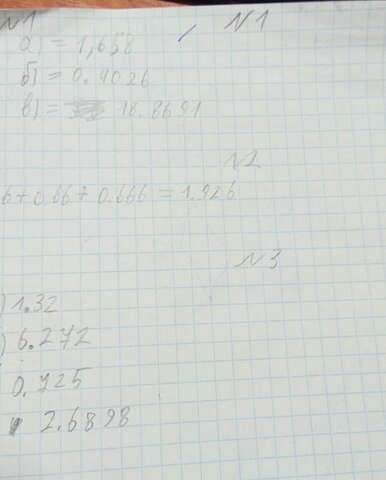 N1 N1
а) = 1,658
б) = 0.4026
в) = 18.8691
N2
6+0.66+0.666 = 1.926
N3
) 1.32
) 6.272
0.725
2.6898